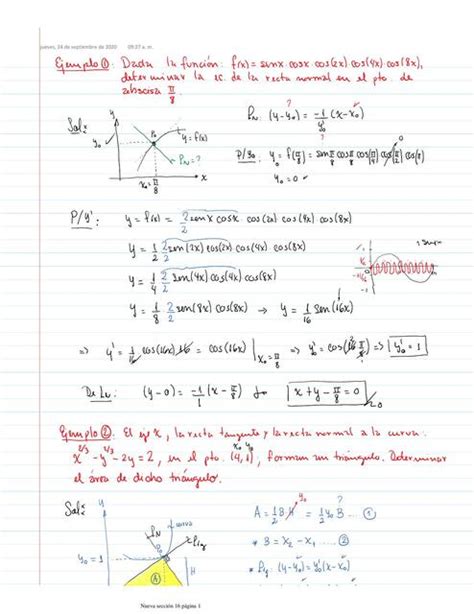 jueves, 24 de septiembre de 2020 09:27 a. m.
Ejemplo ①: Dada la función: f(x) = senx cosx cos(2x) cos(4x) cos(8x),
determinar la ec. de la recta normal en el pto. de
abscisa π/8
Sol:
y
y₀
P₀
y = f(x)
P_N = ?
x₀ = π/8
x
P_N: (y-y₀) = -1/y'₀ (x-x₀)
?
P/y₀: y₀ = f(π/8) = sen π/8 cos π/8 cos(π/4) cos(π/2) cos(π)
0
y₀ = 0
P/y': y = f(x) = 2/2 senx cosx cos(2x) cos(4x) cos(8x)
y = 1/2 2/2 sen(2x) cos(2x) cos(4x) cos(8x)
y = 1/4 2/2 sen(4x) cos(4x) cos(8x)
y = 1/8 2/2 sen(8x) cos(8x) → y = 1/16 sen(16x)
⇒ y' = 1/16 cos(16x) 16 = cos(16x) | x₀ = π/8 ⇒ y'₀ = cos(16 π/8) ⇒ y'₀ = 1
De L_N: (y-0) = -1/1 (x - π/8) x + y - π/8 = 0
Ejemplo ②: El eje x, la recta tangente y la recta normal a la curva:
x^2/3 - y^2/3 - 2y = 2, en el pto. (4,1), forman un triángulo. Determinar
x₀ y₀
el área de dicho triángulo.
Sol:
y
curva
P_N
P₀
y₀ = 1
A
A = 1/2 B H = 1/2 y₀ B ... ①
y₀
?
* B = x₂ - x₁ ... ②
(y-y₀) = y'₀(x-x₀)
Nueva sección 16 página 1